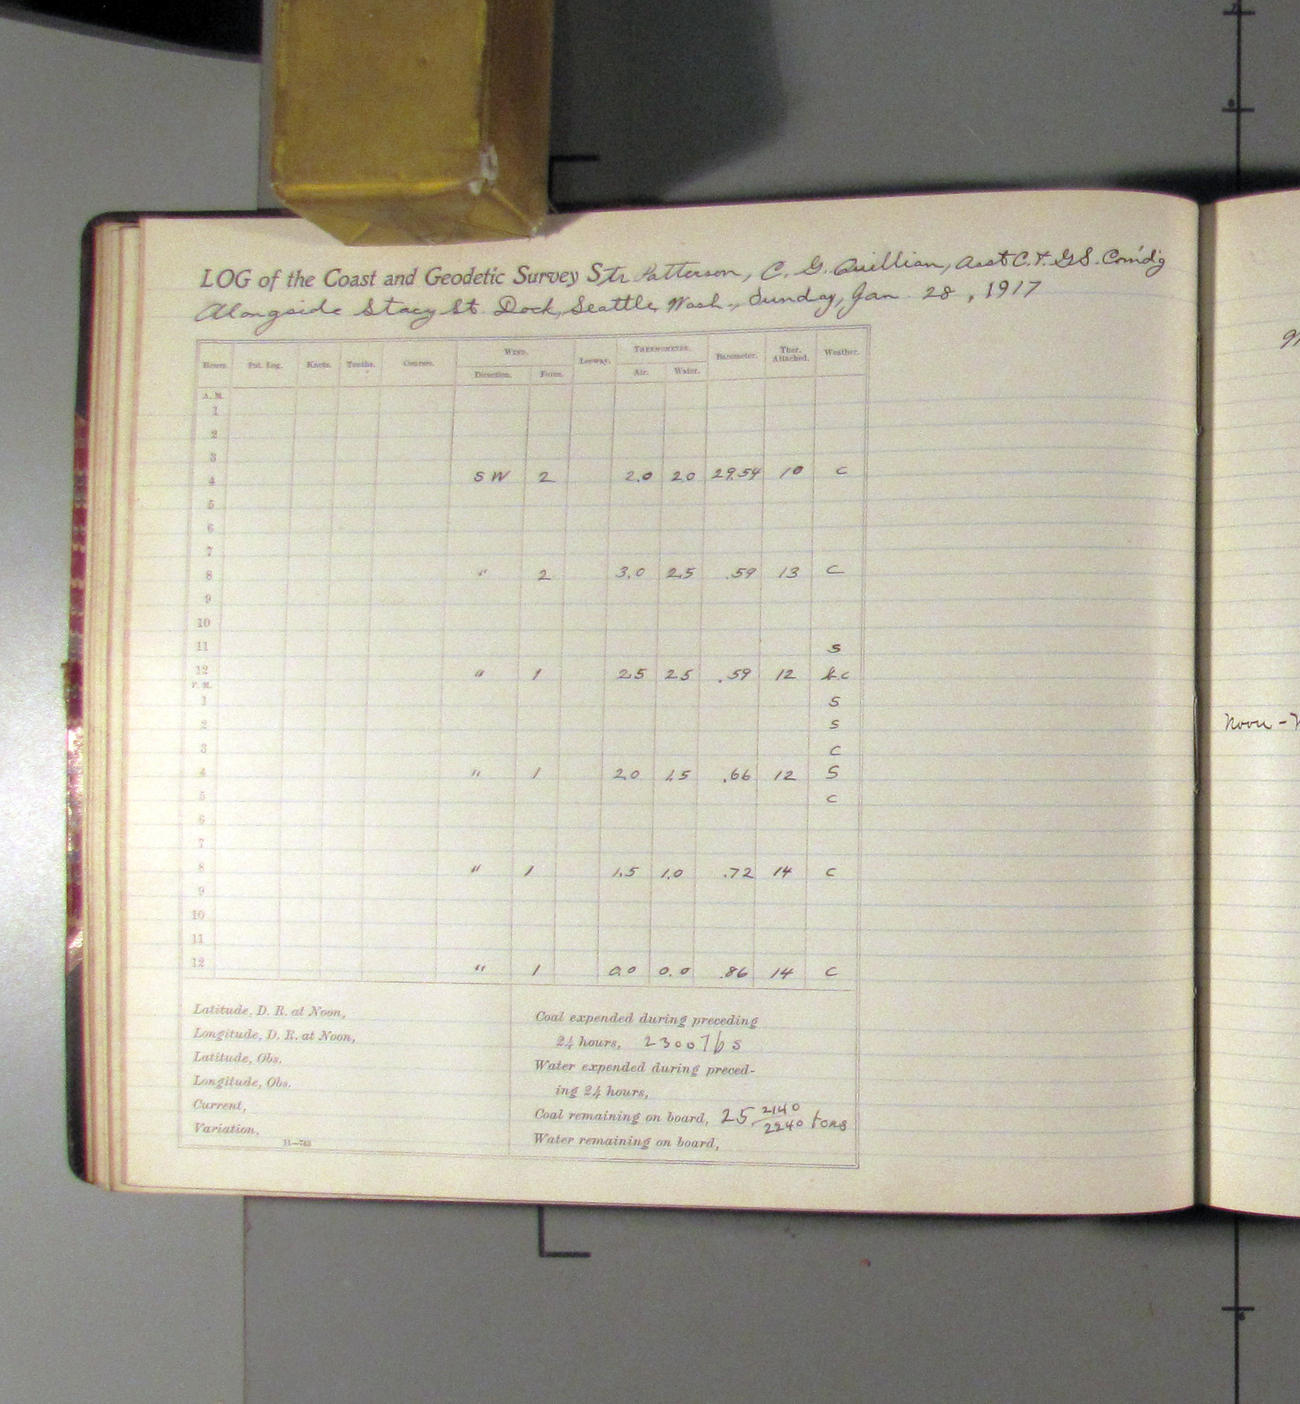 LOG of the Coast and Geodetic Survey Str. Patterson, C. G. Quillian, Asst C. & G.S. Com'd'g
Alongside Stacy St. Dock, Seattle, Wash., Sunday, Jan. 28, 1917
Hours. Pat. Log. Knots. Tenths. Courses. WIND. Leeway. THERMOMETER. Barometer. Ther. Attached. Weather.
Direction. Force. Air. Water.
A. M.
1
2
3
4 SW 2 2.0 2.0 29.59 10 c
5
6
7
8 " 2 3.0 2.5 .59 13 c
9
10
11 s
12 " 1 2.5 2.5 .59 12 c
P. M.
1 s
2 s
3 c
4 " 1 2.0 1.5 .66 12 s
5 c
6
7
8 " 1 1.5 1.0 .72 14 c
9
10
11
12 " 1 0.0 0.0 .86 14 c
Latitude, D. R. at Noon,
Longitude, D. R. at Noon,
Latitude, Obs.
Longitude, Obs.
Current,
Variation,
11—783
Coal expended during preceding
24 hours, 2300 lbs
Water expended during preced-
ing 24 hours,
Coal remaining on board, 25 2140/2240 tons
Water remaining on board,
Noon -